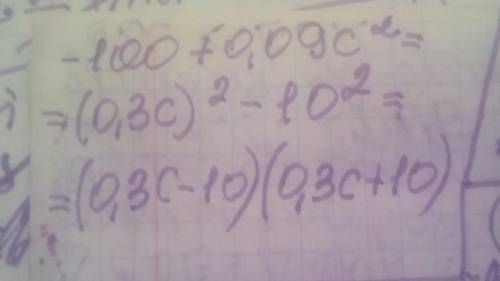 -100 + 0,09c² =
= (0,3c)² - 10² =
= (0,3c-10)(0,3c+10)